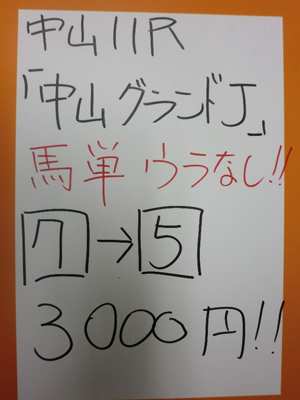 中山11R
「中山グランドJ」
馬単 ウラなし!!
7→5
3000円!!